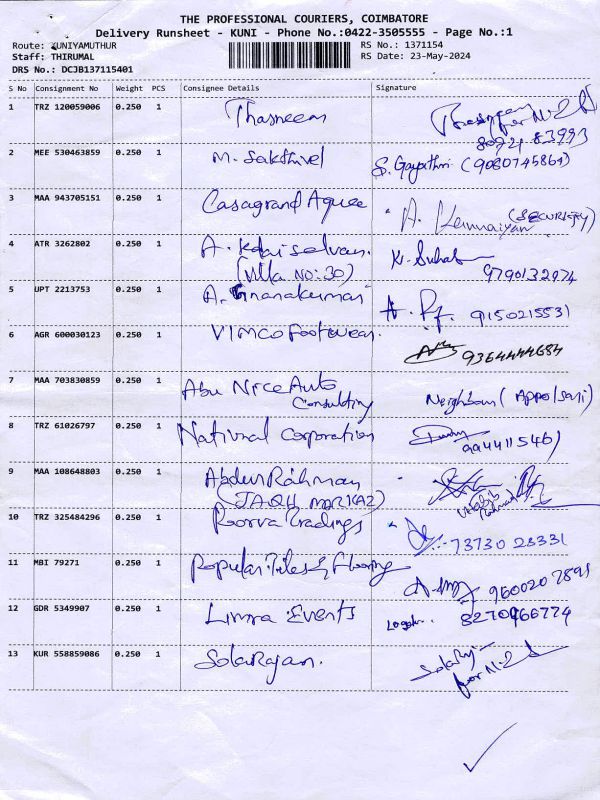 THE PROFESSIONAL COURIERS, COIMBATORE
Delivery Runsheet - KUNI - Phone No.:0422-3505555 - Page No.:1
Route: KUNIYAMUTHUR
RS No.: 1371154
Staff: THIRUMAL
RS Date: 23-May-2024
DRS No.: DCJB137115401
S No Consignment No Weight PCS Consignee Details Signature
1 TRZ 120059006 0.250 1 Thasneem Thasneem
for N.
80721 83993
2 MEE 530463859 0.250 1 M. Sakthivel S. Gayathri (9080745861)
3 MAA 943705151 0.250 1 Casagrand Aquee A. Kannaiyan (SECURITY)
4 ATR 3262802 0.250 1 A. Kalaiselvan.
(Villa NO:30) 9790132974
5 UPT 2213753 0.250 1 A. Gnanakumar 9150215531
6 AGR 600030123 0.250 1 VIMCO Footwear. 9364444684
7 MAA 703830859 0.250 1 Abu Nice Auto
Consulting Neighbour (Appo/sari)
8 TRZ 61026797 0.250 1 National Corporation 9944115461
9 MAA 108648803 0.250 1 Abdur Rahman
(JAQH MARKAZ)
10 TRZ 325484296 0.250 1 Poorva Tradings 73730 28331
11 MBI 79271 0.250 1 Popular Tiles & Flooring 9600207891
12 GDR 5349907 0.250 1 Limra Events 8270966774
13 KUR 558859086 0.250 1 SolaRajan. SolaRaj
for N.